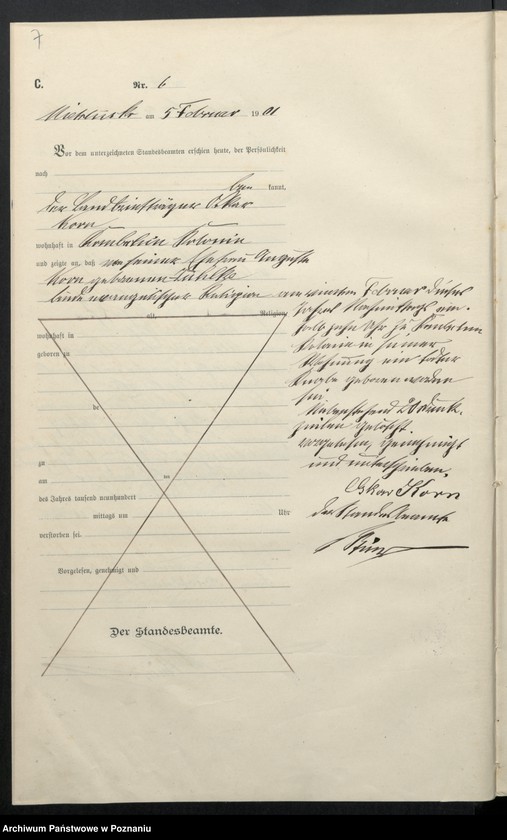 7
C.
Nr. 6
am 5 Februar 1901
Vor dem unterzeichneten Standesbeamten erschien heute, der Persönlichkeit
nach
kannt,
der Landbriefträger Oskar
Korn
wohnhaft in Kolonie
und zeigte an, daß von seiner Ehefrau Auguste
Korn geborenen
beide evangelischer Religion
alt, Religion,
wohnhaft in
geboren zu
de
zu
am ten
des Jahres tausend neunhundert
mittags um Uhr
verstorben sei.
Vorgelesen, genehmigt und
Der Standesbeamte.
am vierten Februar dieses
Jahres Nachmittags um
zehn Uhr zu
Kolonie in seiner
Wohnung ein todter
Knabe geboren worden
sei.
Nebenstehend 20 Druck-
zeilen gelöscht.
Vorgelesen, genehmigt
und unterschrieben.
Oskar Korn
der Standesbeamte
Archiwum Państwowe w Poznaniu